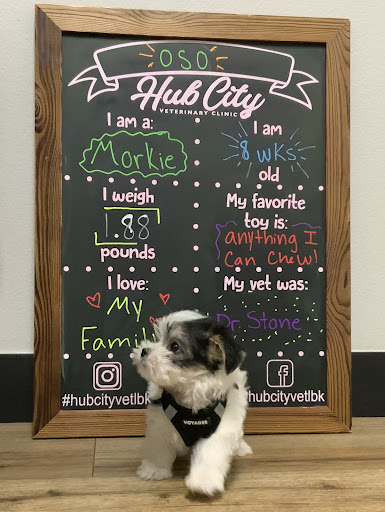 OSO
Hub City
VETERINARY CLINIC
I am a:
Morkie
I am
8 wks
old
I weigh
1.88
pounds
My favorite
toy is:
anything I
Can Chew!
I love:
My
Family
My vet was:
Dr. Stone
#hubcityvetlbk
#hubcityvetlbk
VOYAGER